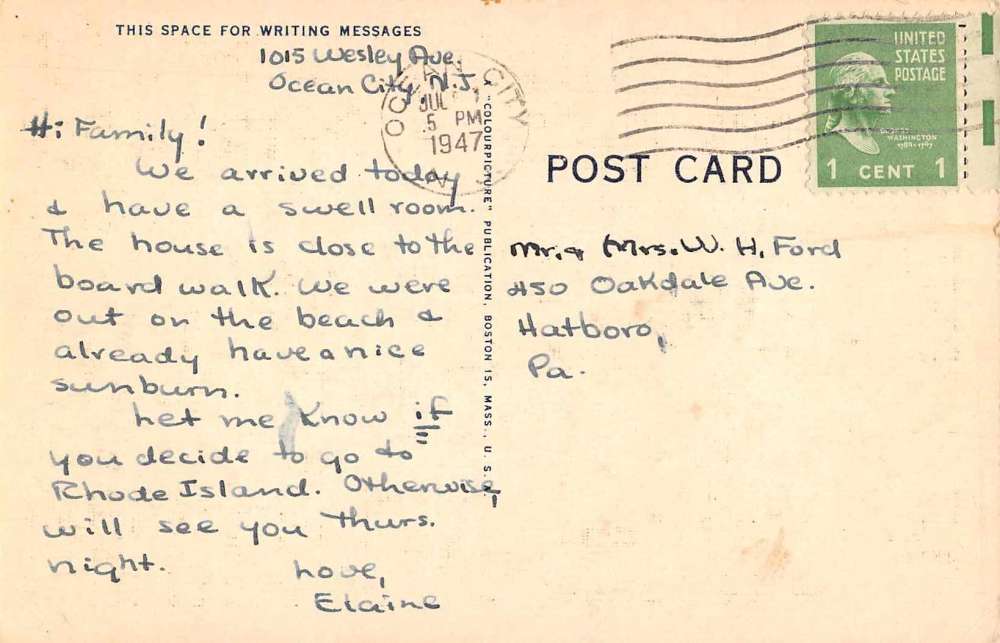 THIS SPACE FOR WRITING MESSAGES
1015 Wesley Ave.
Ocean City, N.J.
Hi Family!
We arrived today
& have a swell room.
The house is close to the
board walk. We were
out on the beach &
already have a nice
sunburn.
Let me know if
you decide to go to
Rhode Island. Otherwise,
will see you Thurs.
night.
Love,
Elaine
"COLOURPICTURE" PUBLICATION, BOSTON 15, MASS., U. S. A.
OCEAN CITY
JUL
5 PM
1947
N.J.
UNITED
STATES
POSTAGE
GEORGE
WASHINGTON
1789-1797
1 CENT 1
POST CARD
Mr. & Mrs. W. H. Ford
450 Oakdale Ave.
Hatboro,
Pa.